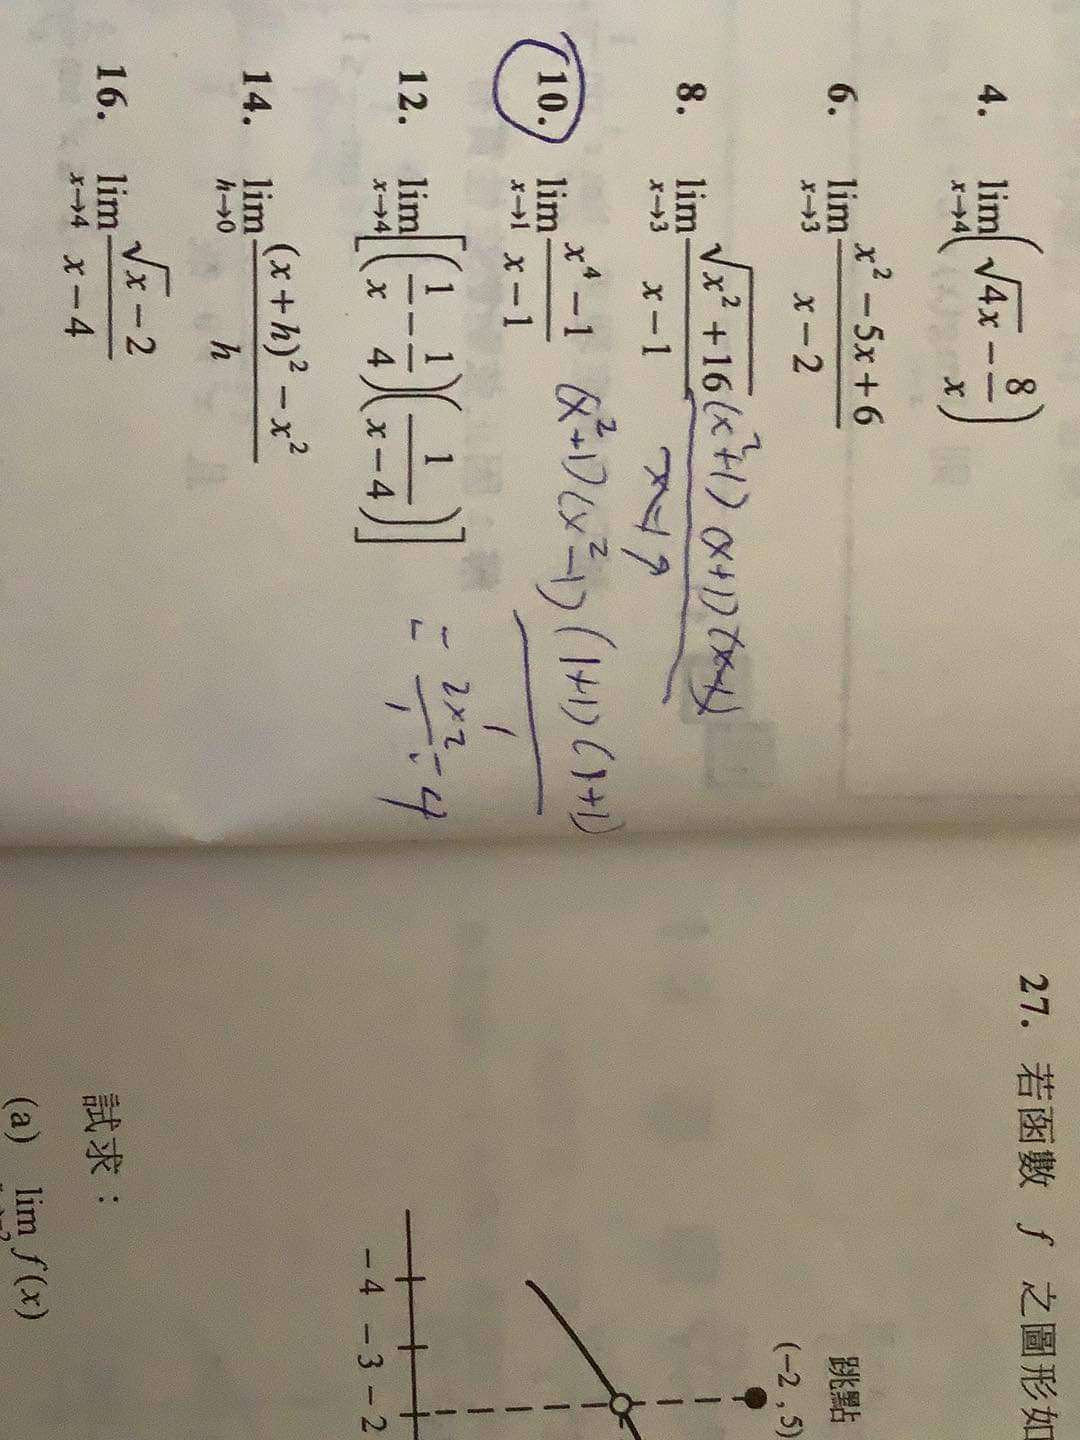 4. lim x→4 (√4x − 8/x)
6. lim x→3 (x² − 5x + 6)/(x − 2)
8. lim x→3 √(x² + 16)/(x − 1)
(x²+1)(x+1)(x-1)
x-1
10. lim x→1 (x⁴ − 1)/(x − 1)
(x²+1)(x²-1)
(1+1)(1+1)
1
12. lim x→4 [(1/x − 1/4)(1/(x − 4))]
= 2×2/1 = 4
14. lim h→0 ((x + h)² − x²)/h
16. lim x→4 (√x − 2)/(x − 4)
27. 若函數 f 之圖形如
跳點
(−2, 5)
−4 −3 −2
試求：
(a) lim f(x)